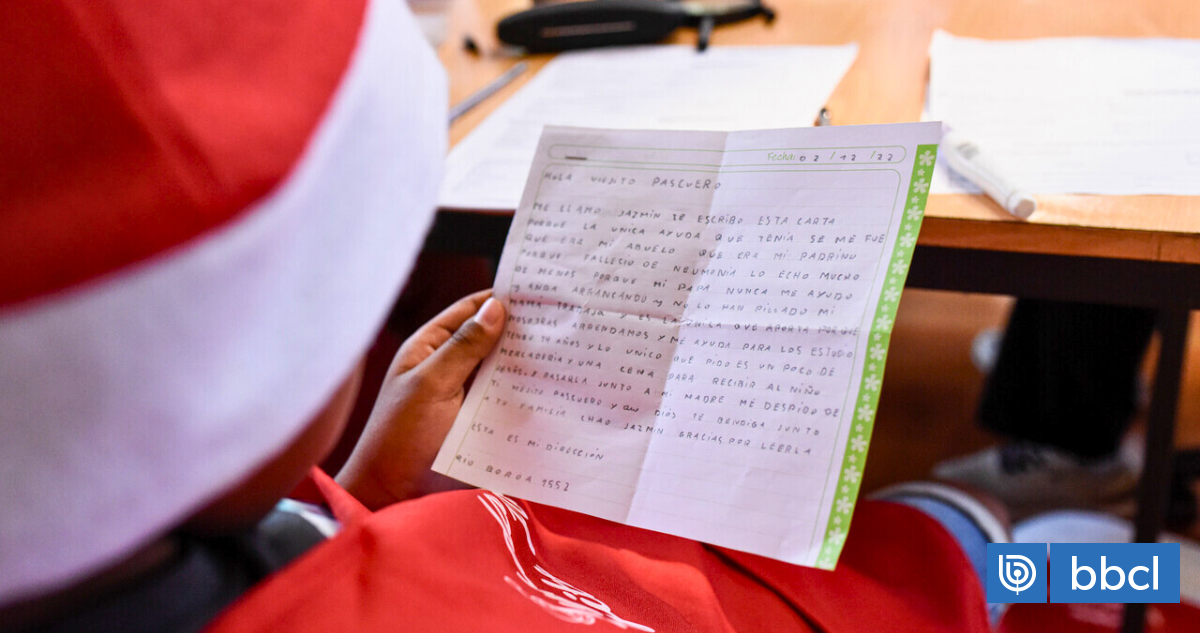 Fecha: 02 / 12 / 22
HOLA VIEJITO PASCUERO
ME LLAMO JAZMIN TE ESCRIBO ESTA CARTA
PORQUE LA UNICA AYUDA QUE TENÍA SE ME FUE
QUE ERA MI ABUELO QUE ERA MI PADRINO
PORQUE FALLECIO DE NEUMONÍA LO ECHO MUCHO
DE MENOS PORQUE MI PAPÁ NUNCA ME AYUDO
Y ANDA ARRANCANDO Y NO LO HAN PILLADO MI
MAMÁ TRABAJA Y ES LA ÚNICA QUE APORTA PORQUE
NOSOTRAS ARRENDAMOS Y ME AYUDA PARA LOS ESTUDIO
TENGO AÑOS Y LO UNICO QUE PIDO ES UN POCO DE
MERCADERÍA Y UNA CENA PARA RECIBIR AL NIÑO
PASARLA JUNTO A MI MADRE ME DESPIDO DE
TI VIEJITO PASCUERO Y QUE DIOS TE BENDIGA JUNTO
A TU FAMILIA CHAO JAZMIN GRACIAS POR LEERLA
ESTA ES MI DIRECCIÓN
RIO 1552
bbcl